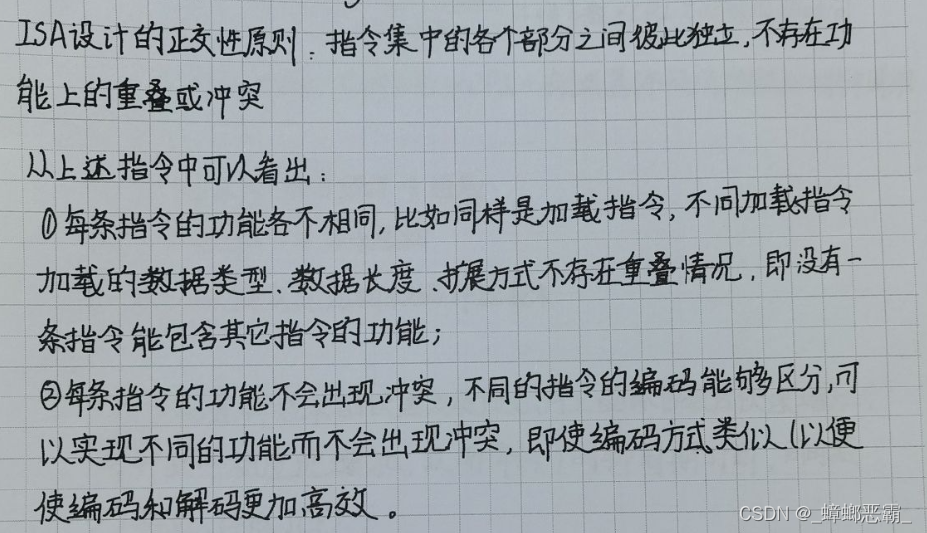 ISA设计的正交性原则：指令集中的各个部分之间彼此独立，不存在功
能上的重叠或冲突
从上述指令中可以看出：
①每条指令的功能各不相同，比如同样是加载指令，不同加载指令
加载的数据类型、数据长度、扩展方式不存在重叠情况，即没有一
条指令能包含其它指令的功能；
②每条指令的功能不会出现冲突，不同的指令的编码能够区分，可
以实现不同的功能而不会出现冲突，即使编码方式类似（以便
使编码和解码更加高效。
CSDN @_蟑螂恶霸_